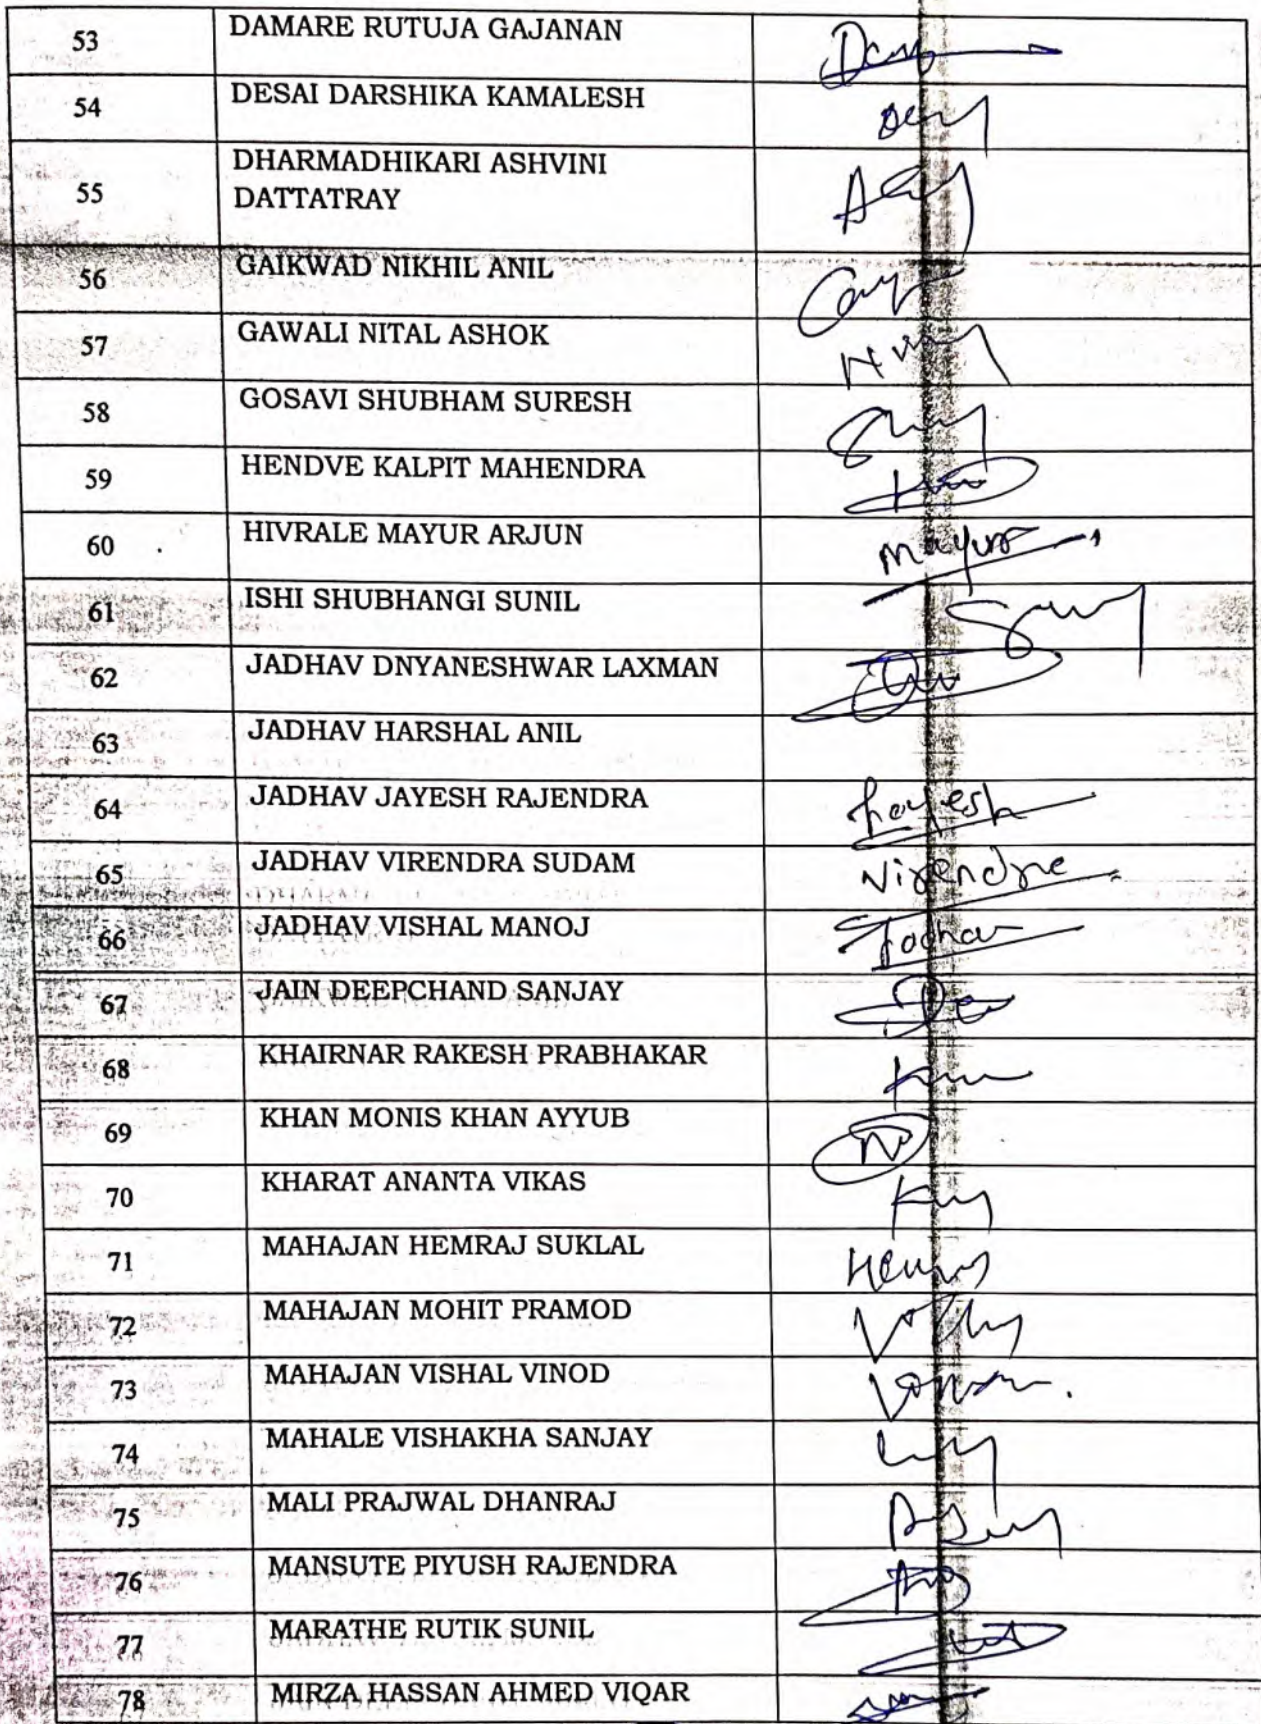 53 DAMARE RUTUJA GAJANAN
54 DESAI DARSHIKA KAMALESH
55 DHARMADHIKARI ASHVINI
DATTATRAY
56 GAIKWAD NIKHIL ANIL
57 GAWALI NITAL ASHOK
58 GOSAVI SHUBHAM SURESH
59 HENDVE KALPIT MAHENDRA
60 HIVRALE MAYUR ARJUN Mayur
61 ISHI SHUBHANGI SUNIL
62 JADHAV DNYANESHWAR LAXMAN
63 JADHAV HARSHAL ANIL
64 JADHAV JAYESH RAJENDRA Jayesh
65 JADHAV VIRENDRA SUDAM Virendra
66 JADHAV VISHAL MANOJ Jadhav
67 JAIN DEEPCHAND SANJAY
68 KHAIRNAR RAKESH PRABHAKAR
69 KHAN MONIS KHAN AYYUB
70 KHARAT ANANTA VIKAS
71 MAHAJAN HEMRAJ SUKLAL
72 MAHAJAN MOHIT PRAMOD
73 MAHAJAN VISHAL VINOD
74 MAHALE VISHAKHA SANJAY
75 MALI PRAJWAL DHANRAJ
76 MANSUTE PIYUSH RAJENDRA
77 MARATHE RUTIK SUNIL
78 MIRZA HASSAN AHMED VIQAR